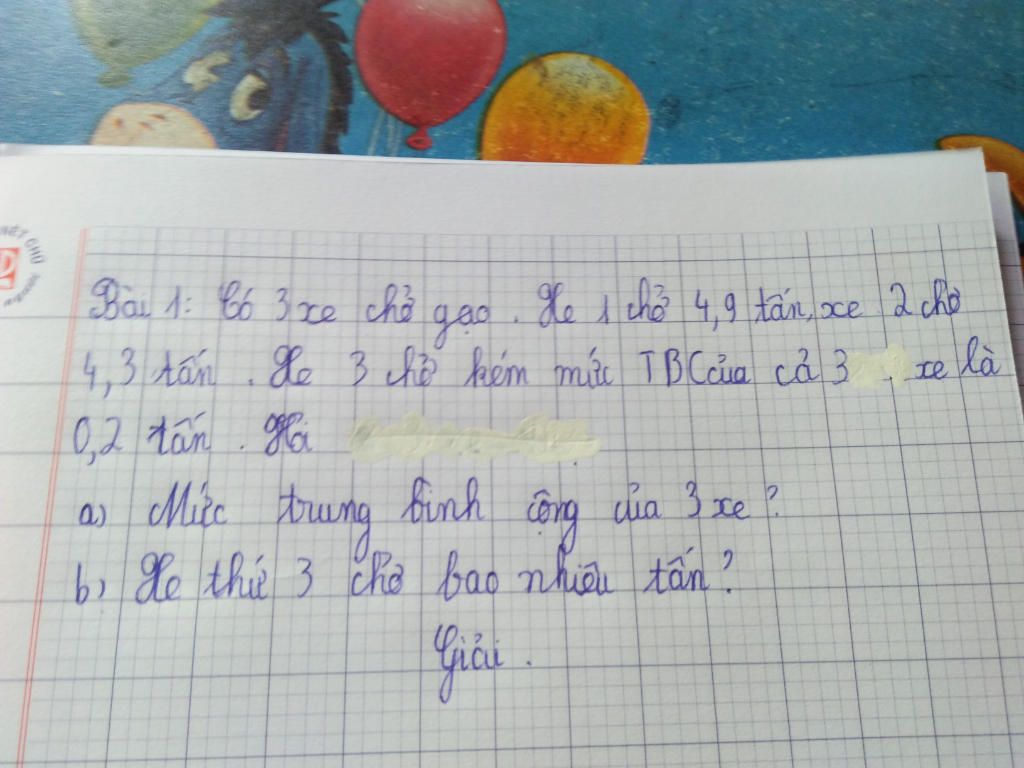 Bài 1: Có 3 xe chở gạo. Xe 1 chở 4,9 tấn, xe 2 chở
4,3 tấn. Xe 3 chở kém mức TBC của cả 3 xe là
0,2 tấn. Hỏi
a) Mức trung bình cộng của 3 xe?
b) Xe thứ 3 chở bao nhiêu tấn?
Giải.
NÉT CHỮ